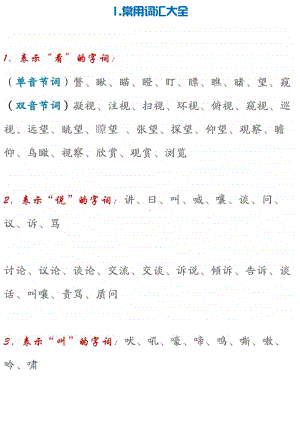 1.常用词汇大全
1. 表示“看”的字词：
（单音节词）瞥、瞅、瞄、瞪、盯、瞟、瞧、睹、望、窥
（双音节词）凝视、注视、扫视、环视、俯视、窥视、巡
视、远望、眺望、瞭望 、张望、探望、仰望、观察、瞻
仰、鸟瞰、视察、欣赏、观赏、浏览
2. 表示“说”的字词：讲、曰、叫、喊、嚷、谈、问、
议、诉、骂
讨论、议论、谈论、交流、交谈、诉说、倾诉、告诉、谈
话、叫嚷、责骂、质问
3. 表示“叫”的字词：吠、吼、嚎、啼、鸣、嘶、嗷、
吟、啸